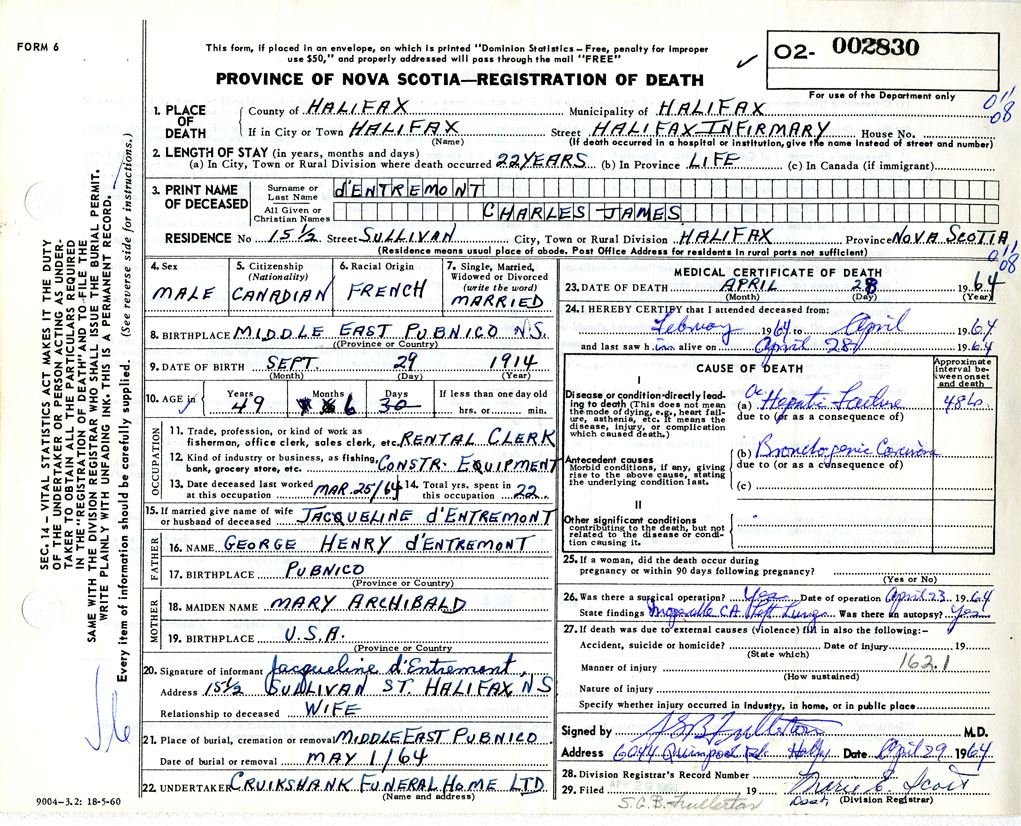 FORM 6
This form, if placed in an envelope, on which is printed "Dominion Statistics – Free, penalty for improper
use $50," and properly addressed will pass through the mail "FREE"
PROVINCE OF NOVA SCOTIA—REGISTRATION OF DEATH
O2- 002830
For use of the Department only
011
08
1. PLACE OF DEATH County of HALIFAX Municipality of HALIFAX
If in City or Town HALIFAX Street HALIFAX INFIRMARY House No.
(Name) (If death occurred in a hospital or institution, give the name instead of street and number)
2. LENGTH OF STAY (in years, months and days)
(a) In City, Town or Rural Division where death occurred 22 YEARS (b) In Province LIFE (c) In Canada (if immigrant)
3. PRINT NAME OF DECEASED Surname or Last Name d'ENTREMONT
All Given or Christian Names CHARLES JAMES
RESIDENCE No 15 1/2 Street SULLIVAN City, Town or Rural Division HALIFAX Province NOVA SCOTIA
(Residence means usual place of abode. Post Office Address for residents in rural parts not sufficient)
011
08
4. Sex MALE
5. Citizenship (Nationality) CANADIAN
6. Racial Origin FRENCH
7. Single, Married, Widowed or Divorced (write the word) MARRIED
8. BIRTHPLACE MIDDLE EAST PUBNICO N.S.
(Province or Country)
9. DATE OF BIRTH SEPT. 29 1914
(Month) (Day) (Year)
10. AGE in Years 49 Months 6 Days 30 If less than one day old hrs. or min.
OCCUPATION
11. Trade, profession, or kind of work as
fisherman, office clerk, sales clerk, etc. RENTAL CLERK
12. Kind of industry or business, as fishing,
bank, grocery store, etc. CONSTR. EQUIPMENT
13. Date deceased last worked at this occupation MAR. 25/64 14. Total yrs. spent in this occupation 22
15. If married give name of wife or husband of deceased JACQUELINE d'ENTREMONT
FATHER
16. NAME GEORGE HENRY d'ENTREMONT
17. BIRTHPLACE PUBNICO
(Province or Country)
MOTHER
18. MAIDEN NAME MARY ARCHIBALD
19. BIRTHPLACE U.S.A.
(Province or Country)
20. Signature of informant Jacqueline d'Entremont,
Address 15 1/2 SULLIVAN ST. HALIFAX N S
Relationship to deceased WIFE
21. Place of burial, cremation or removal MIDDLE EAST PUBNICO
Date of burial or removal MAY 1/64
22. UNDERTAKER CRUIKSHANK FUNERAL HOME LTD.
(Name and address)
MEDICAL CERTIFICATE OF DEATH
23. DATE OF DEATH APRIL 28 1964
(Month) (Day) (Year)
24. I HEREBY CERTIFY that I attended deceased from:
February 1964 to April 1964
and last saw him alive on April 28 1964
CAUSE OF DEATH
Approximate interval between onset and death
I
Disease or condition directly leading to death (This does not mean the mode of dying, e.g., heart failure, asthenia, etc. It means the disease, injury, or complication which caused death.)
(a) Ac Hepatic Failure 48 hs.
due to (or as a consequence of)
Antecedent causes
Morbid conditions, if any, giving rise to the above cause, stating the underlying condition last.
(b) Bronchogenic Carcinoma
due to (or as a consequence of)
(c)
II
Other significant conditions
contributing to the death, but not related to the disease or condition causing it.
25. If a woman, did the death occur during
pregnancy or within 90 days following pregnancy?
(Yes or No)
26. Was there a surgical operation? Yes Date of operation April 23 1964
State findings Inoperable CA Left Lung Was there an autopsy? Yes
27. If death was due to external causes (violence) fill in also the following:-
Accident, suicide or homicide? Date of injury 19
(State which)
Manner of injury 162.1
(How sustained)
Nature of injury
Specify whether injury occurred in industry, in home, or in public place
Signed by S G B Fullerton M.D.
Address 6044 Quinpool Rd. Hfx Date April 29 1964
28. Division Registrar's Record Number
29. Filed 19 Marie E. Scott
(Division Registrar)
S.G.B. Fullerton
SEC. 14 – VITAL STATISTICS ACT MAKES IT THE DUTY
OF THE UNDERTAKER OR PERSON ACTING AS UNDER-
TAKER TO OBTAIN ALL THE PARTICULARS REQUIRED
IN THE "REGISTRATION OF DEATH" AND TO FILE THE
SAME WITH THE DIVISION REGISTRAR WHO SHALL ISSUE THE BURIAL PERMIT.
WRITE PLAINLY WITH UNFADING INK. THIS IS A PERMANENT RECORD.
Every item of information should be carefully supplied. (See reverse side for instructions.)
9004-3.2: 18-5-60